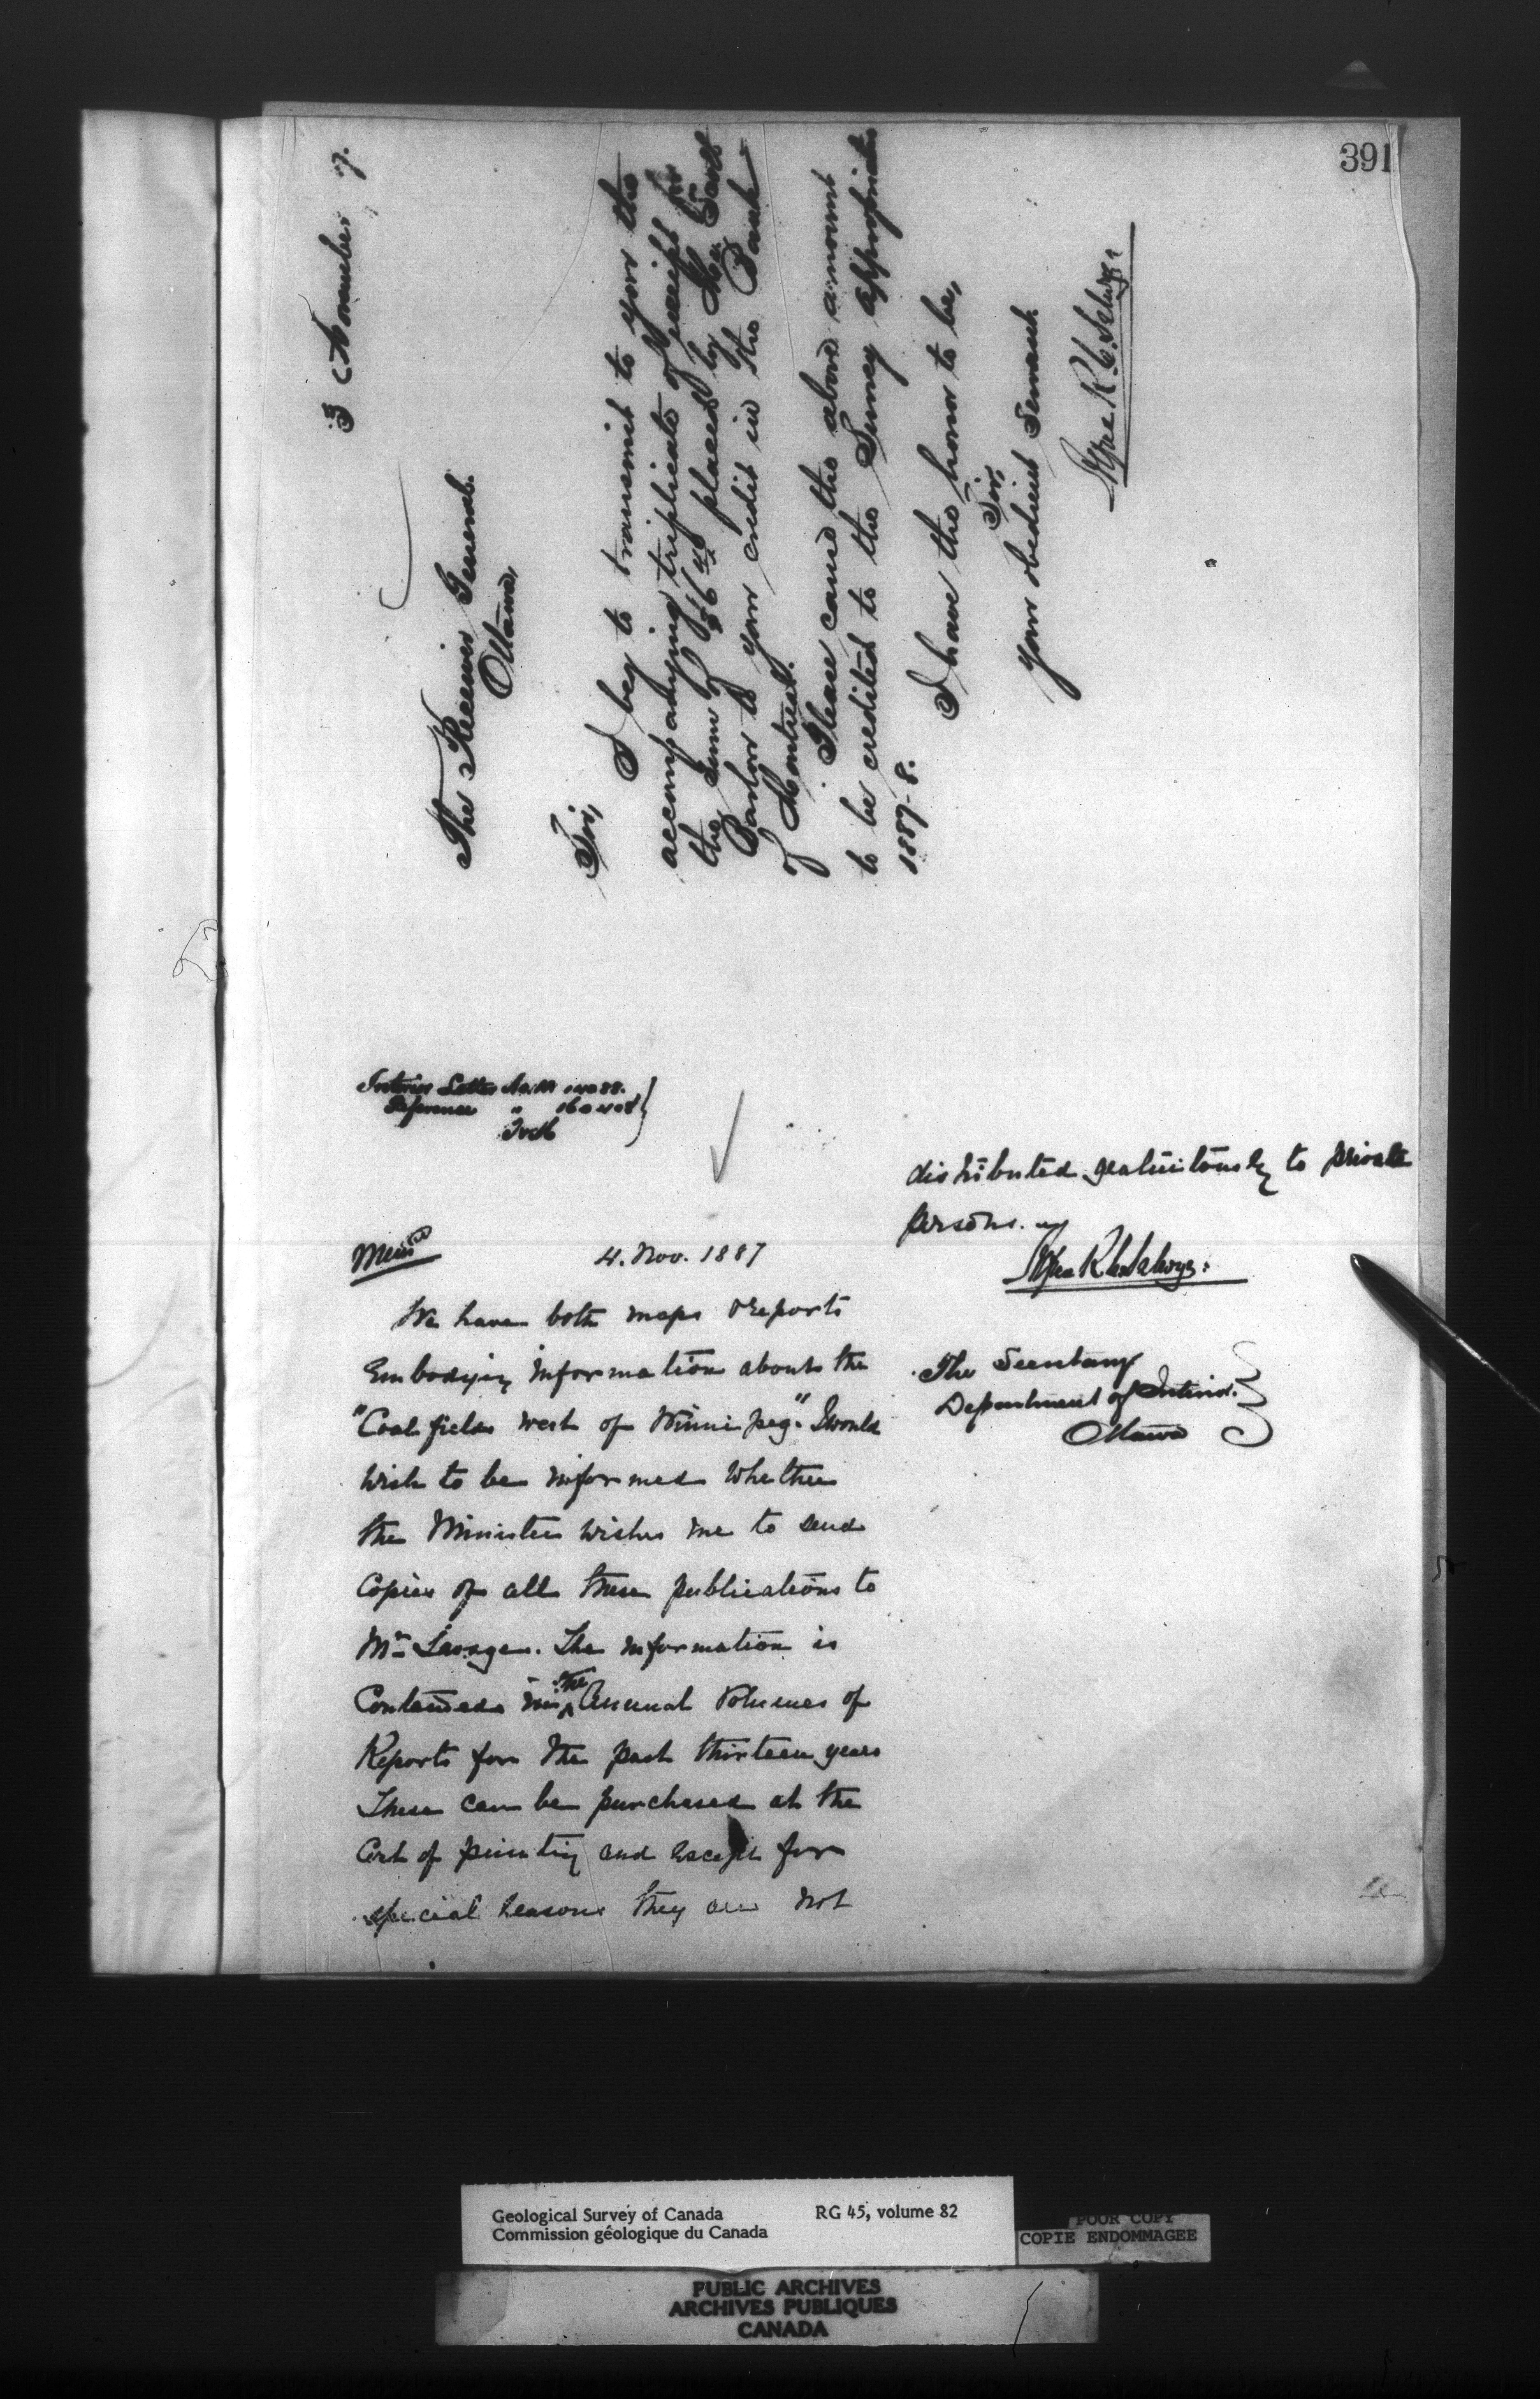 391
3rd November 7.
The Receiver General.
Ottawa,
Sir,
I beg to transmit to you the
accompanying triplicate of receipt for
the sum of placed by
to your credit in the Bank
of Montreal.
Please cause the above amount
to be credited to the Survey appropriation
1887-8.
I have the honor to be,
Sir,
your obedient Servant.
Alfred R. C. Selwyn
Interior Letter No.
Reference "
Memo
4. Nov. 1887
We have both maps & reports
Embodying information about the
"Coal fields west of Winnipeg". I would
wish to be informed whether
the Minister wishes me to send
Copies of all these publications to
Mr. The information is
Contained in the Annual Volumes of
Reports for the past thirteen years
These can be purchased at the
Cost of printing and except for
special reasons they are not
distributed gratuitously to private
persons.
Alfred R C Selwyn
The Secretary
Department of Interior.
Ottawa
Geological Survey of Canada RG 45, volume 82
Commission géologique du Canada
POOR COPY
COPIE ENDOMMAGEE
PUBLIC ARCHIVES
ARCHIVES PUBLIQUES
CANADA